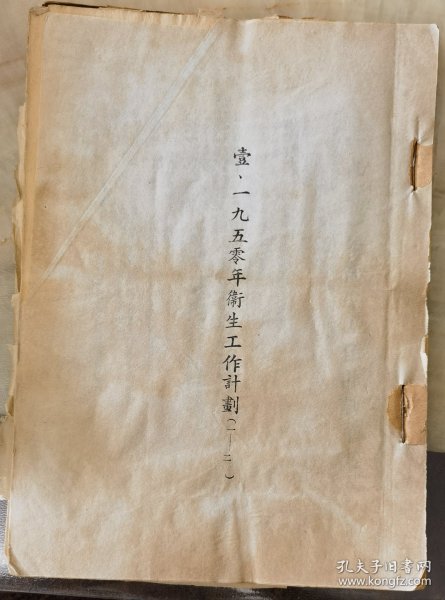 壹、一九五零年衛生工作計劃(一—二)
孔夫子旧书网
www.kongfz.com